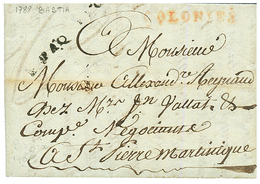 1788 BASTIA
COLONIES
PAQ
Monsieur
Monsieur Allexandre Reynaud
chez Mrs. Jn Vallat &
Compe. Négociants
a St. Pierre Martinique